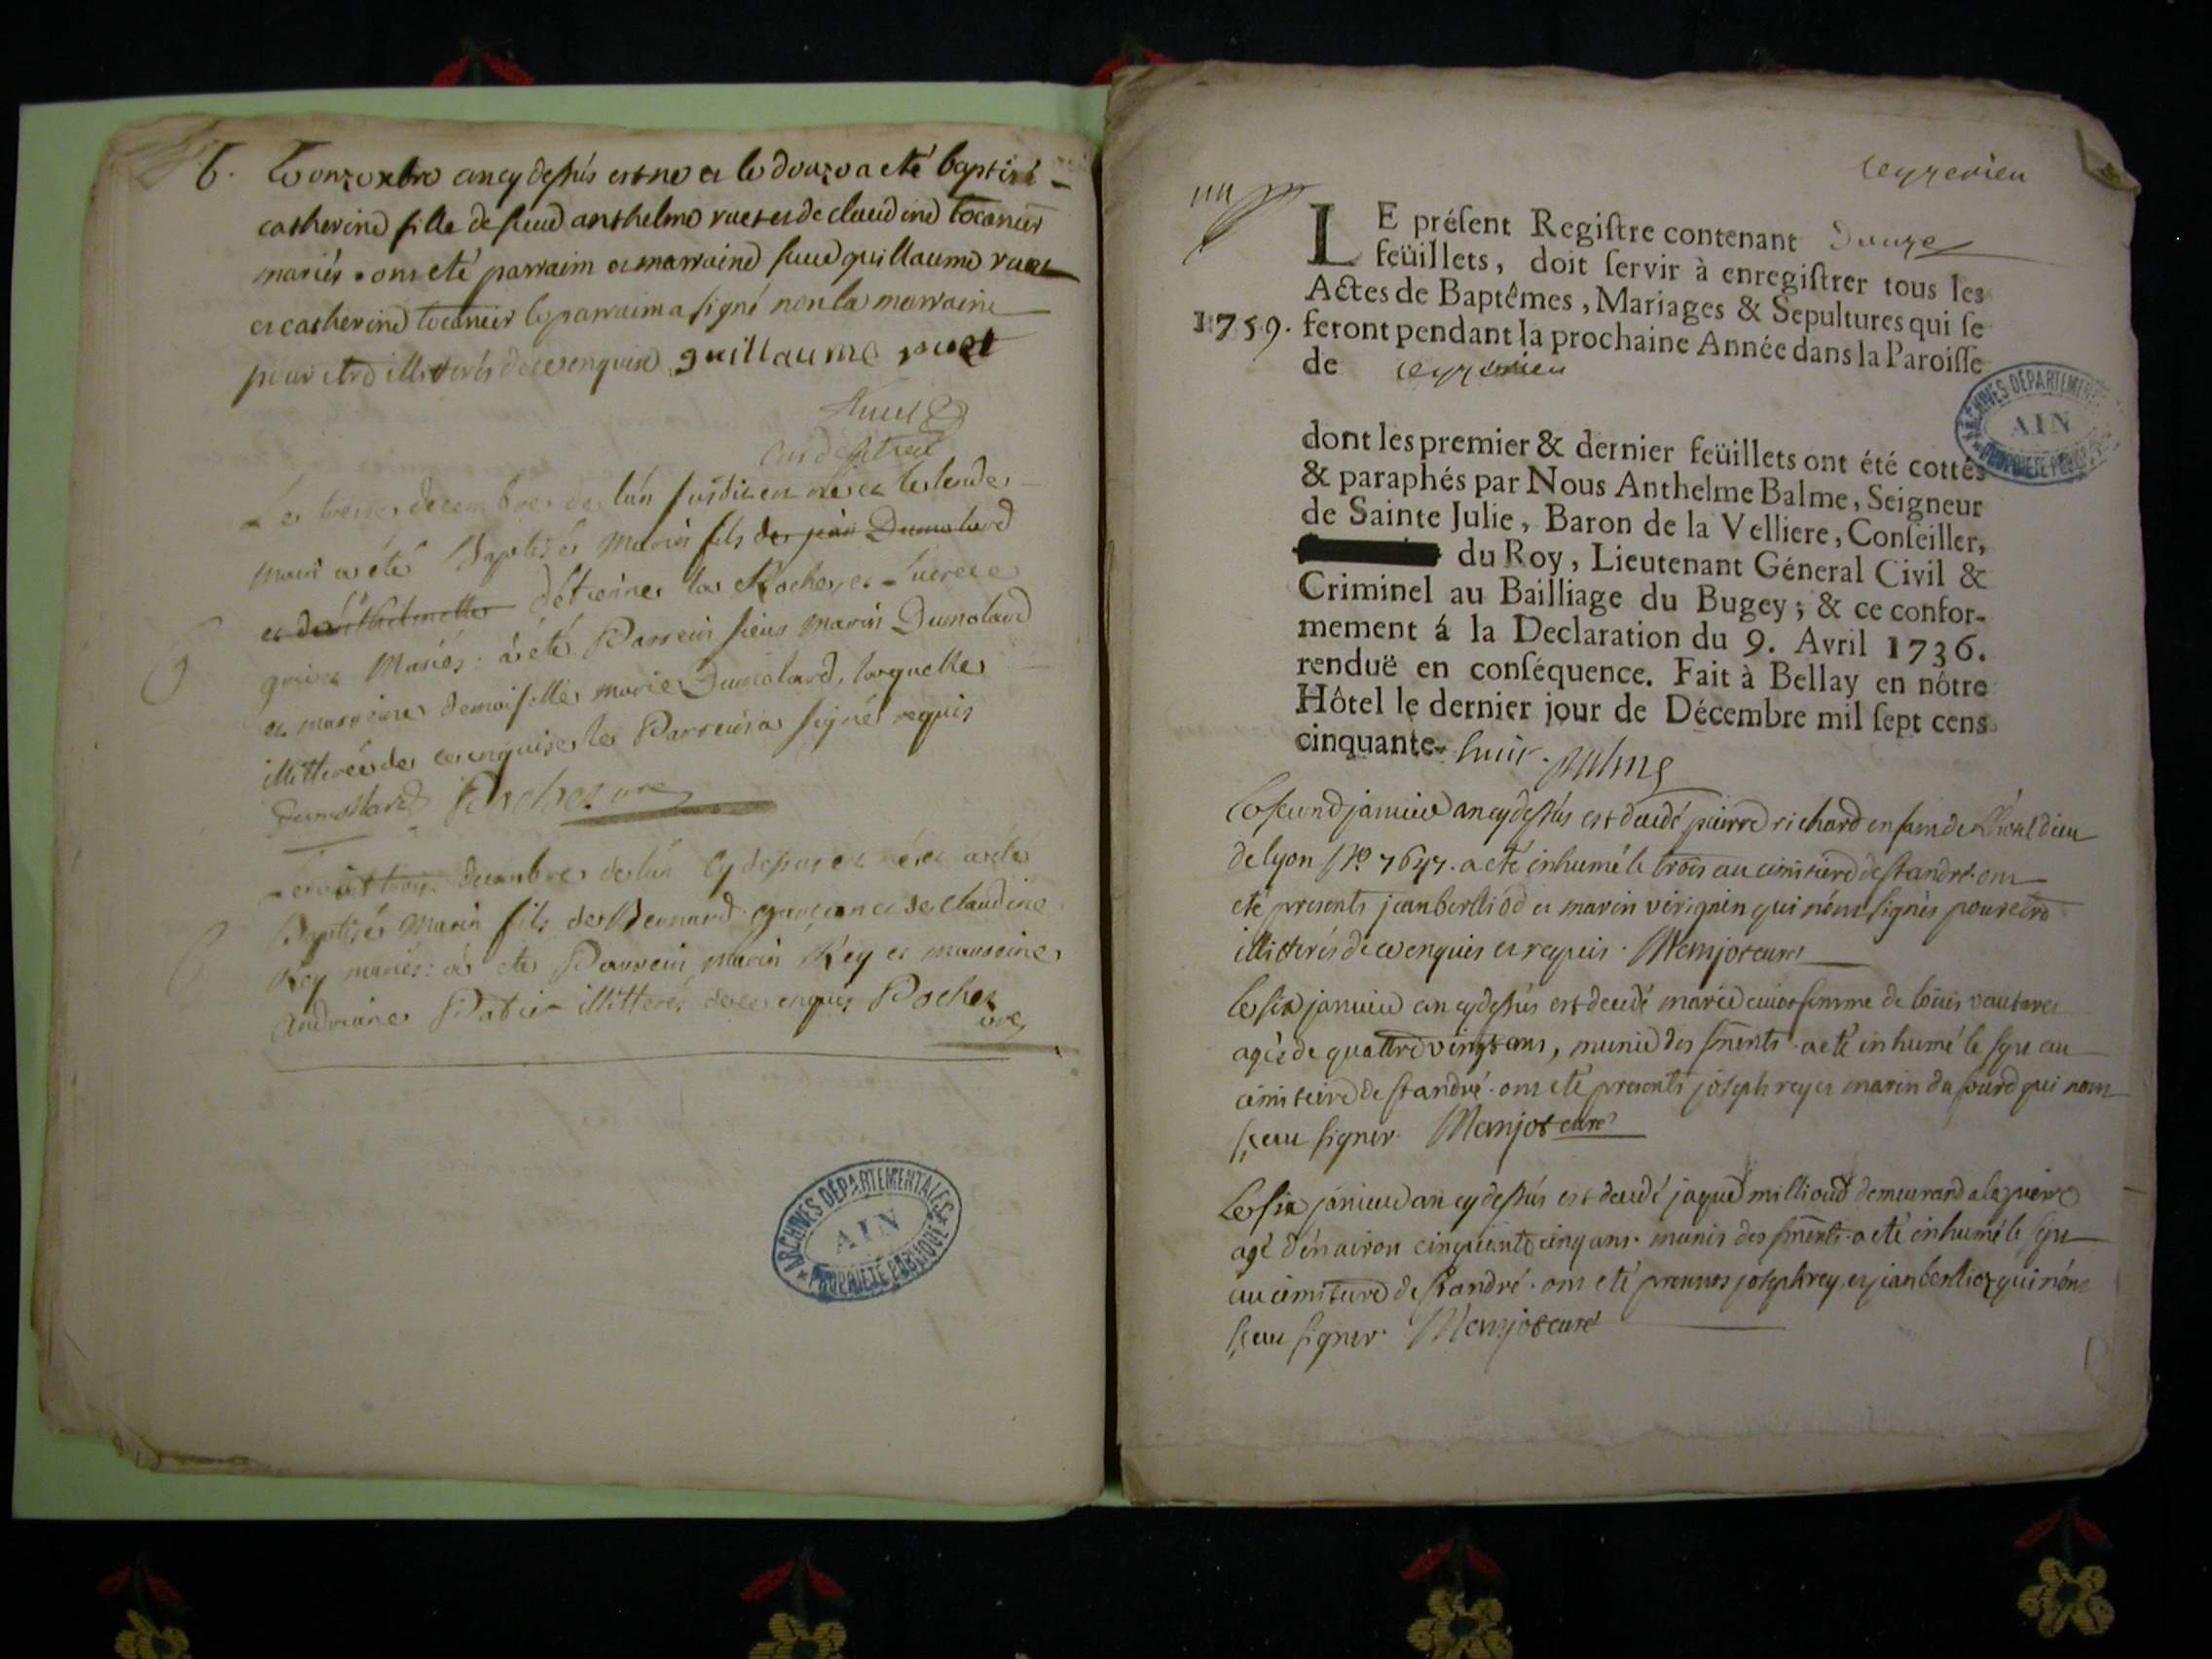 B. Le onze xbre an cy dessus est né et le douze a eté baptisé
catherine fille de sieur anthelme ruet et de claudine tocanier
mariés. ont eté parrain et marraine sieur guillaume ruet
et catherine tocanier le parrain a signé non la marraine
pour etre illiterés de ce enquise guillaume ruet
Ruet
Le treize decembre de l'an susdit est né et le lende
main a été Baptisé Marin fils de jean Dumolard
d'Etienne la Roche et Lucrece
Mariés: a été Parrein sieur marin Dumolard
et marreine demoiselle marie Dumolard, laquelle
illitterée de ce enquise le Parrein a signé requis
Dumollard
decembre de l'an cy dessus est né et a eté
Baptisé Marin fils de Bernard et de Claudine
Rey mariés: a eté Parrein marin Rey et marreine
andrianne illitterés de ce enquis Poches
ARCHIVES DÉPARTEMENTALES
AIN
PROPRIÉTÉ PUBLIQUE
Ceyzerieu
LE présent Registre contenant Douze
feüillets, doit servir à enregistrer tous les
Actes de Baptêmes, Mariages & Sepultures qui se
1759. feront pendant la prochaine Année dans la Paroisse
de Ceyzerieu
ARCHIVES DÉPARTEMENTALES
AIN
PROPRIÉTÉ PUBLIQUE
dont les premier & dernier feüillets ont été cottés
& paraphés par Nous Anthelme Balme, Seigneur
de Sainte Julie, Baron de la Velliere, Conseiller,
du Roy, Lieutenant Géneral Civil &
Criminel au Bailliage du Bugey; & ce confor-
mement á la Declaration du 9. Avril 1736.
renduë en conséquence. Fait à Bellay en nôtre
Hôtel le dernier jour de Décembre mil sept cens
cinquante- huit. Balme
Le second janvier an cy dessus est decedé pierre richard enfant de l'hotel dieu
de lyon No 7647. a eté inhumé le trois au cimitiere de st andré. ont
eté presents jean berlliod et marin virignin qui n'ont signés pour etre
illiterés de ce enquis et requis. Monjot curé
Le six janvier an cy dessus est decedé marie femme de loüis vautaret
agée de quattre vingt ans, munie des sments. a eté inhumé le sept au
cimitiere de st andré. ont eté presents joseph rey et marin du four qui n'ont
sceu signer. Monjot curé
Le six janvier an cy dessus est decedé jaque millioud demeurand a la pierre
agé d'enairon cinquante cinq ans. munis des sments. a eté inhumé le sept
au cimitiere de st andré. ont eté presents joseph rey, et jean berlliet qui n'ont
sceu signer. Monjot curé